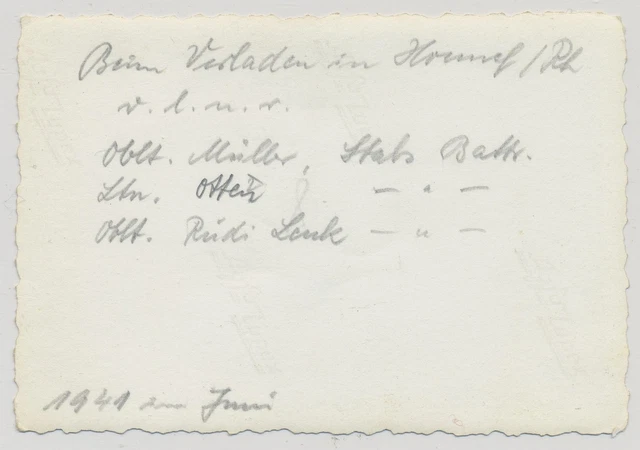 Beim Verladen in Honnef/Rh
v. l. n. r.
Oblt. Müller, Stabs Battr.
Ltn. Otten — " —
Oblt. Rudi Lenk — " —
1941 im Juni